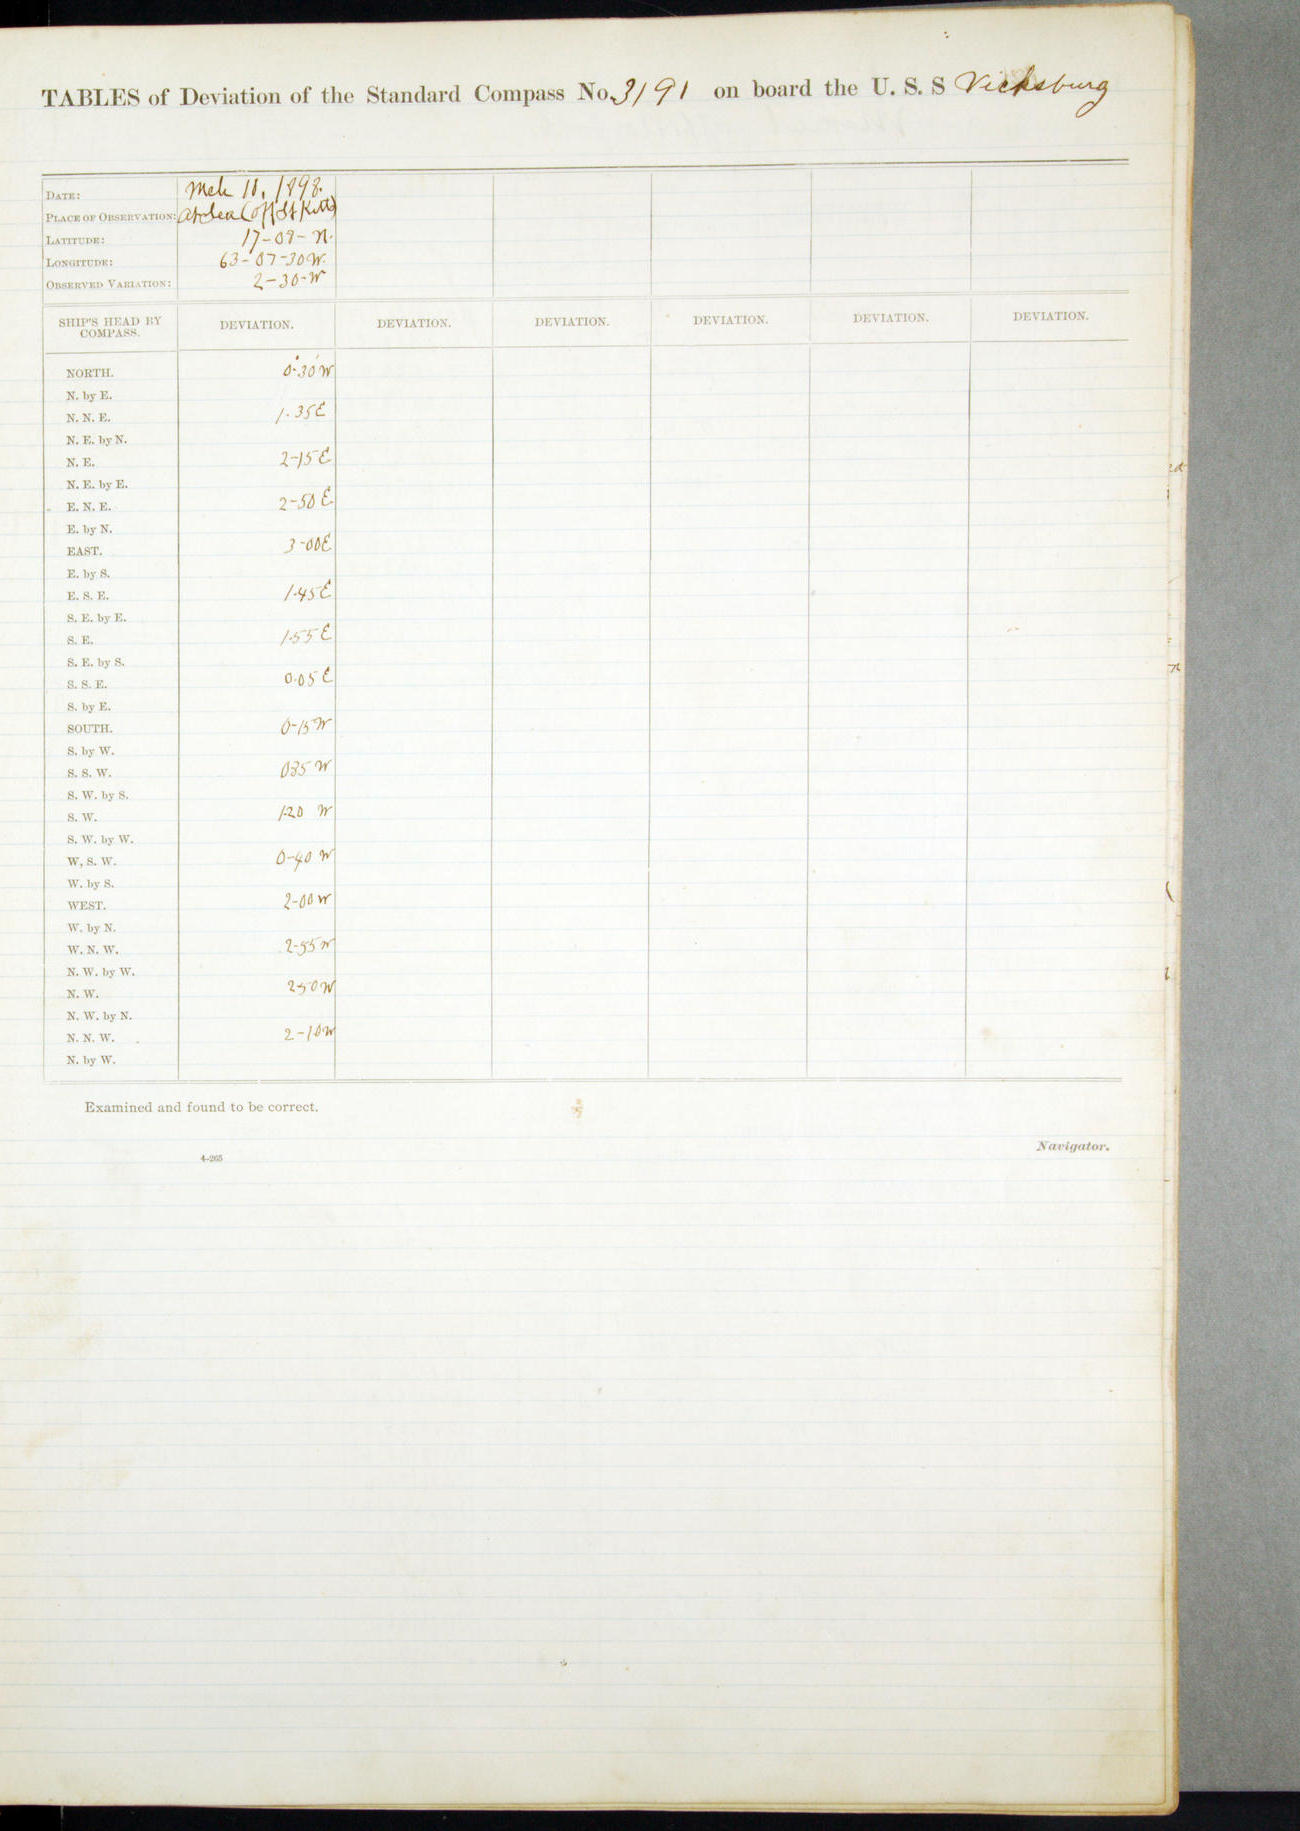 TABLES of Deviation of the Standard Compass No. 3191 on board the U. S. S Vicksburg
DATE: Mch 11, 1898.
PLACE OF OBSERVATION: At Sea (off St Kitts)
LATITUDE: 17-09- N.
LONGITUDE: 63-07-30 W.
OBSERVED VARIATION: 2-30-W
SHIP'S HEAD BY COMPASS. DEVIATION. DEVIATION. DEVIATION. DEVIATION. DEVIATION. DEVIATION.
NORTH. 0°-30' W
N. by E.
N. N. E. 1-35 E
N. E. by N.
N. E. 2-15 E
N. E. by E.
E. N. E. 2-50 E
E. by N.
EAST. 3-00 E
E. by S.
E. S. E. 1-45 E
S. E. by E.
S. E. 1-55 E
S. E. by S.
S. S. E. 0-05 E
S. by E.
SOUTH. 0-15 W
S. by W.
S. S. W. 035 W
S. W. by S.
S. W. 1-20 W
S. W. by W.
W, S. W. 0-40 W
W. by S.
WEST. 2-00 W
W. by N.
W. N. W. 2-55 W
N. W. by W.
N. W. 2-50 W
N. W. by N.
N. N. W. 2-10 W
N. by W.
Examined and found to be correct.
Navigator.
4-265